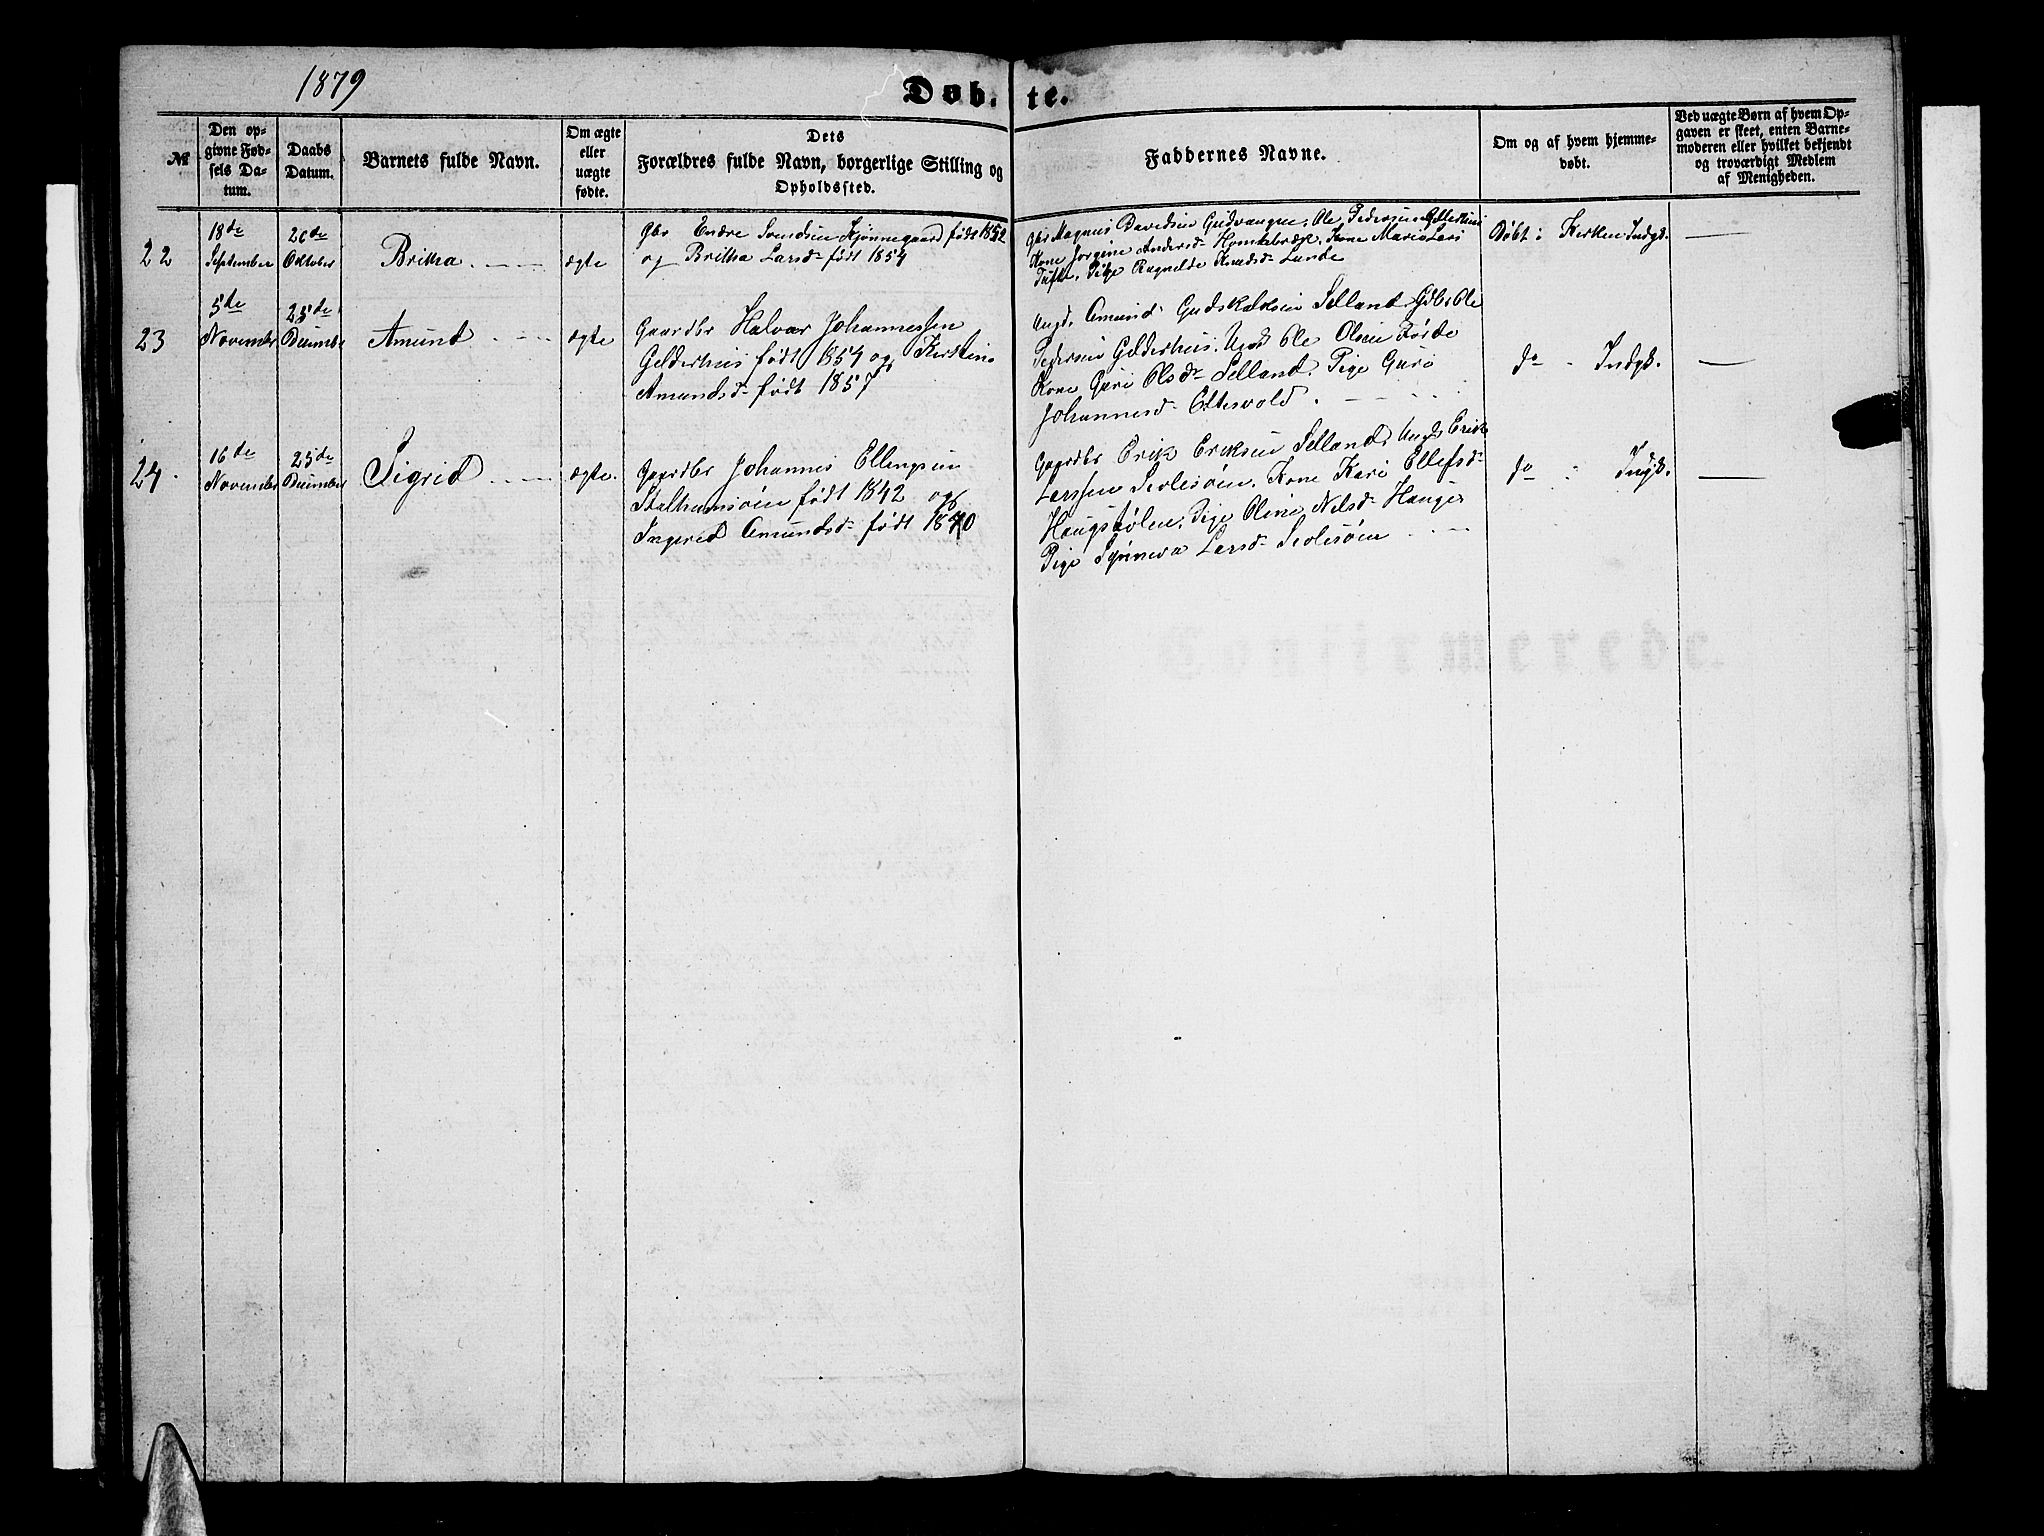 1879
Døb. te.
№
Den op-
givne Fød-
sels Da-
tum.
Daabs
Datum.
Barnets fulde Navn.
Om ægte
eller
uægte
fødte.
Dets
Forældres fulde Navn, borgerlige Stilling og
Opholdssted.
Faddernes Navne.
Om og af hvem hjemme-
døbt.
Ved uægte Børn af hvem Op-
gaven er skeet, enten Barne-
moderen eller hvilket bekjendt
og troværdigt Medlem
af Menigheden.
22
18de
September
26de
Oktober
Britha
ægte
Gbr Endre Svendsen Hjønnegaard født 1852
og Britha Larsd. født 1854
Gbr Magnus Davidsen Gudvangen, Ole Pedersen Gelderhus
Kone Jorgine Andersd. Kone Maria Lars
Tufte, Pige Ragnelde Knudsd. Lunde
Døbt i Kirken Indgd.
23
5de
November
25de
Amund
ægte
Gaardbr Halvar Johannessen
Gelderhus født 1854 og Kirstine
Amundsd. født 1857
Ungd. Amund Gudskalksen Selland, Gdbr Ole
Pedersen Gelderhus, Ungd. Ole Olsen Førde
Kone Guri Olsd. Selland, Pige Guri
Johannesd.
do - Indgk.
24.
16de
November
25de
Sigrid
ægte.
Gaardbr Johannes Ellingsen
født 1842 og
Ingerid Amundsd. født 1840
Gaardbr Erik Eriksen Selland, Ungd. Erik
Larssen Kone Kari Ellefsd.
Pige Oline Nilsd. Haugen
Pige Synneva Larsd.
do - Indgk.
Confirmerede.